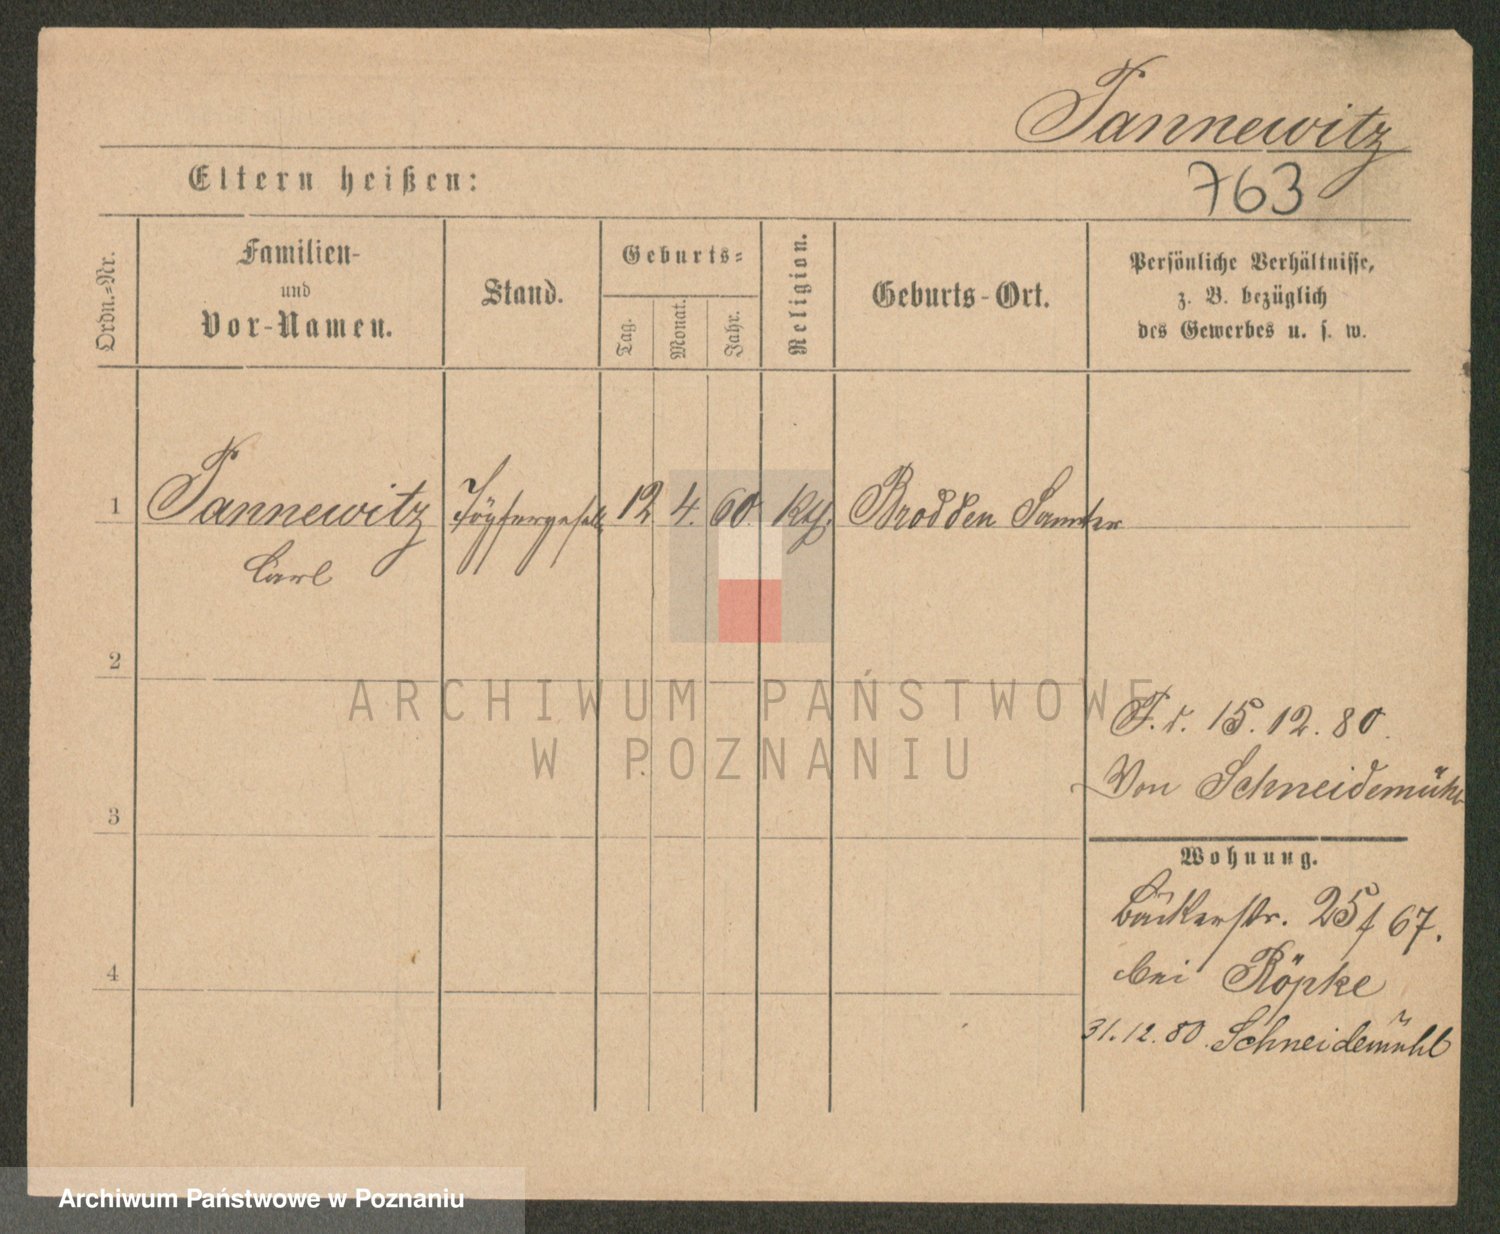 Tannewitz
763
Eltern heißen:
Ordn.-Nr.
Familien-
und
Vor-Namen.
Stand.
Geburts-
Tag.
Monat.
Jahr.
Religion.
Geburts-Ort.
Persönliche Verhältnisse,
z. B. bezüglich
des Gewerbes u. s. w.
1 Tannewitz Töpfergesell 12 4. 60. kth. Brodden Samter
Carl
2
ARCHIWUM PAŃSTWOWE
W POZNANIU
15. 12. 80.
Von Schneidemühl
3
Wohnung.
Bäckerstr. 25 f 67.
bei Röpke
4
31. 12. 80. Schneidemühl
Archiwum Państwowe w Poznaniu